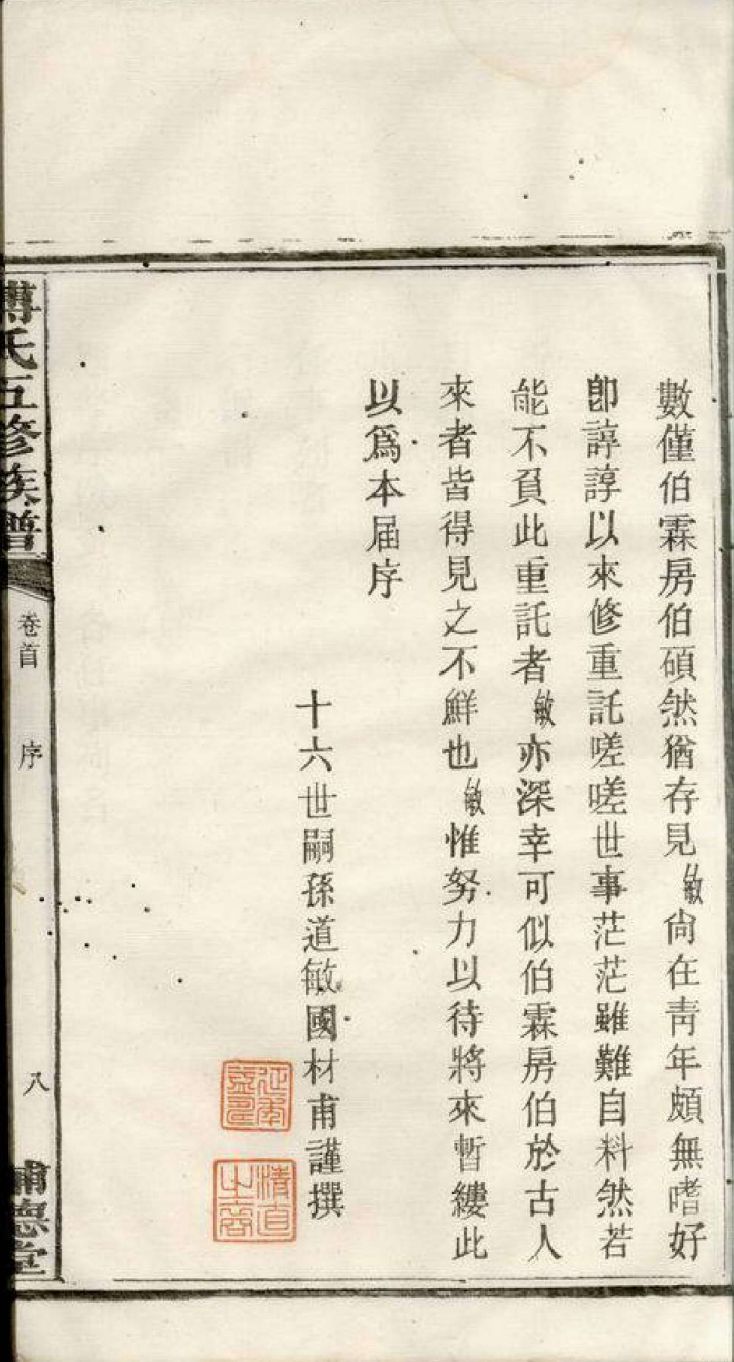 數僅伯霖房伯碩然猶存見敏尙在靑年頗無嗜好
卽諄諄以來修重託嗟嗟世事茫茫雖難自料然若
能不負此重託者敏亦深幸可似伯霖房伯於古人
來者皆得見之不鮮也敏惟努力以待將來暫縷此
以爲本屆序
十六世嗣孫道敏國材甫謹撰
清直之裔
傅氏五修族譜
卷首
序
八